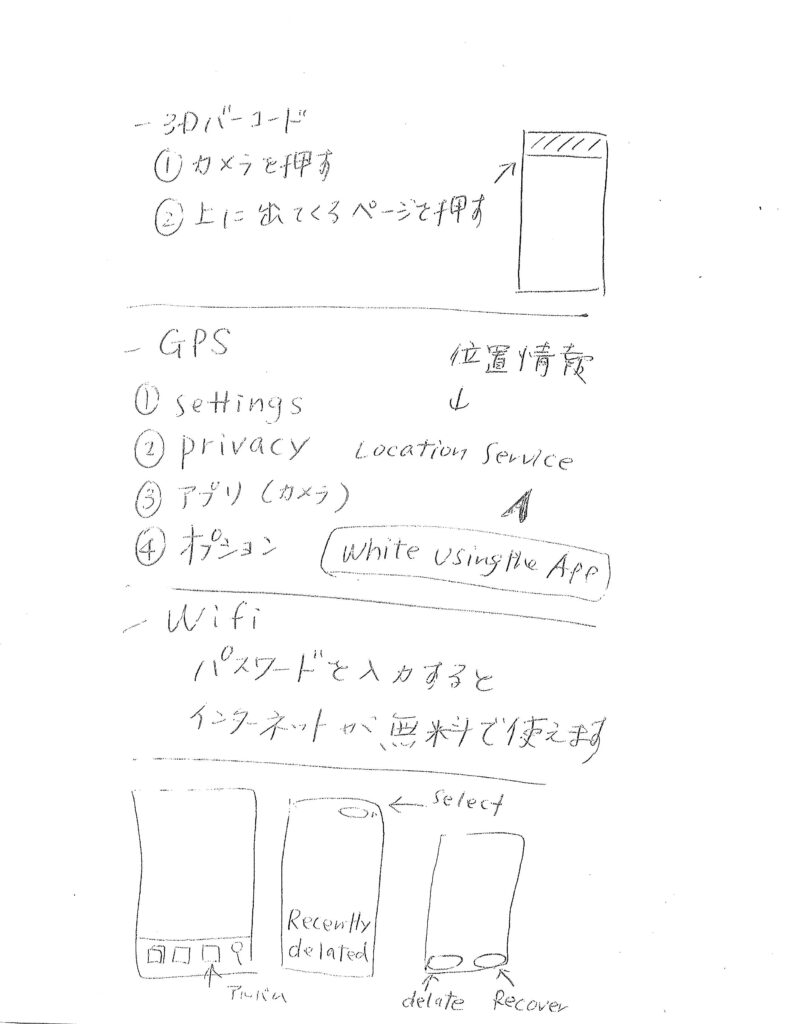 - 3Dバーコード
① カメラを押す
② 上に出てくるページを押す
- GPS
位置情報
↓
① settings
② privacy Location Service
③ アプリ(カメラ)
④ オプション White Using the App
- Wifi
パスワードを入力すると
インターネットが無料で使えます
← Select
Recently
delated
アルバム
delate Recover